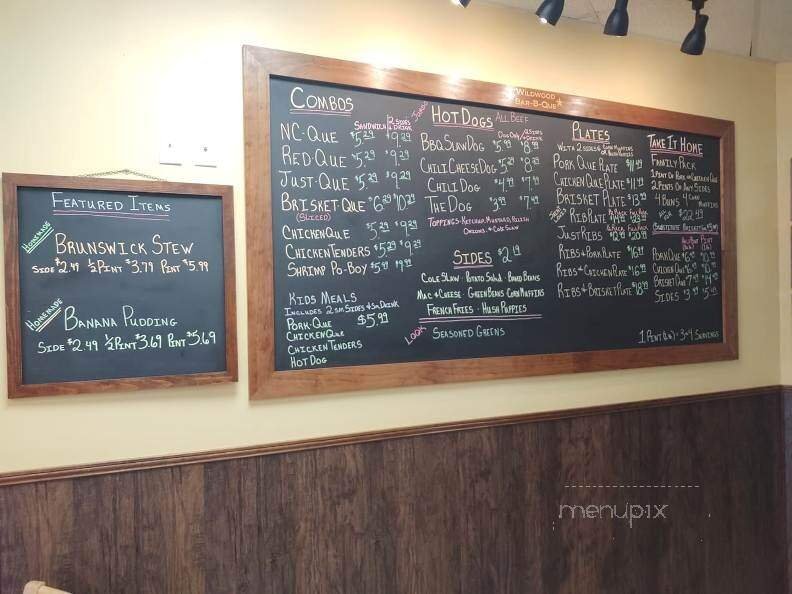 Featured Items
Homemade
Brunswick Stew
Side $2.49 ½ Pint $3.79 Pint $5.99
Homemade
Banana Pudding
Side $2.49 ½ Pint $3.69 Pint $5.69
Wildwood
Bar-B-Que
Combos
Sandwich 2 Sides & Drink
NC-Que $5.29 $9.29
Red-Que $5.29 $9.29
Just-Que $5.29 $9.29
Brisket Que $6.29 $10.29
(Sliced)
ChickenQue $5.29 $9.29
Chicken Tenders $5.29 $9.29
Shrimp Po-Boy
Kids Meals
Includes 2 sm. Sides & sm. Drink
Pork-Que $5.99
ChickenQue
Chicken Tenders
Hot Dog
Jumbo
Hot Dogs All Beef
2 Sides & Drink
BBQ Slaw Dog
Chili Cheese Dog
Chili Dog
The Dog
Toppings-Ketchup, Mustard, Relish
Onions & Cole Slaw
Sides $2.19
Cole Slaw · Potato Salad · Baked Beans
Mac & Cheese · Green Beans · Corn Muffins
French Fries · Hush Puppies
Look
Seasoned Greens
Plates
With 2 Sides &
Pork Que Plate $11.49
ChickenQue Plate $11.49
Brisket Plate
Rib Plate
Just Ribs
Ribs & Pork Plate
Ribs & Chicken Plate
Ribs & Brisket Plate
Take It Home
Family Pack
1 Pint of Pork or Chicken Que
2 Pints of Any Sides
4 Buns 4 Corn Muffins
$22.49
Half Pint Pint
Pork Que
Chicken Que
Brisket Que
Sides
1 Pint (1 lb.) = 3-4 Servings
menupix